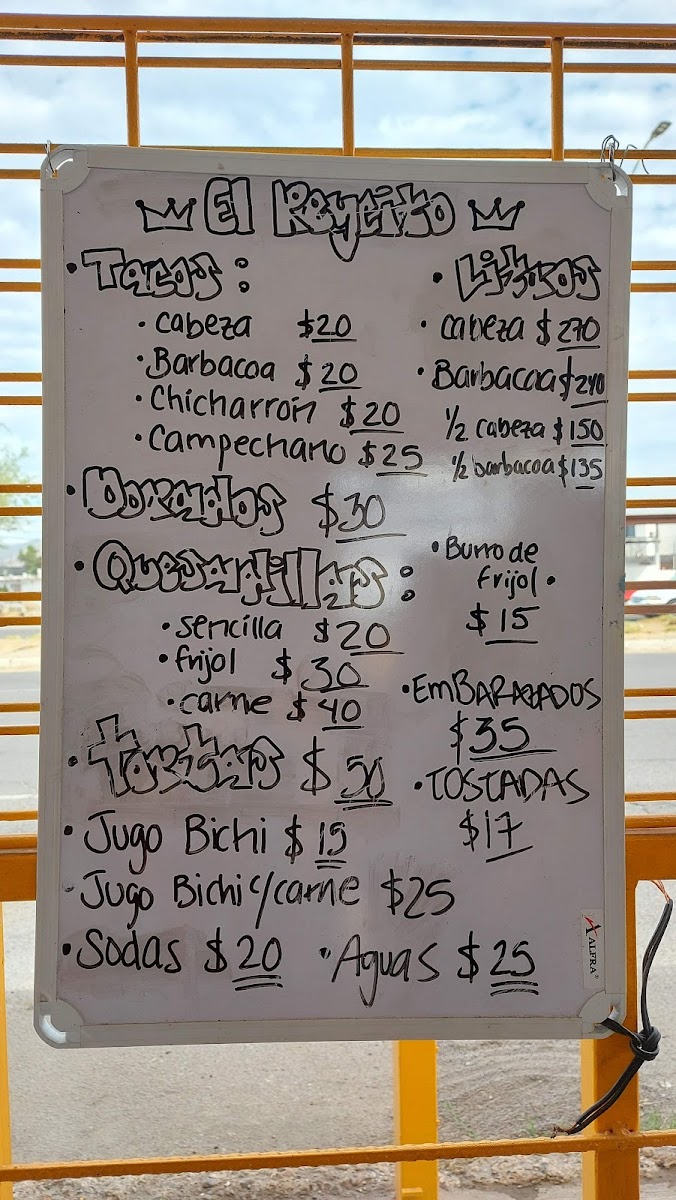 El Reycito
• Tacos :
• cabeza $20
• Barbacoa $20
• Chicharrón $20
• Campechano $25
• Dorados $30
• Quesadillas :
• sencilla $20
• frijol $30
• carne $40
• tortas $50
• Jugo Bichi $15
• Jugo Bichi c/carne $25
• Sodas $20 • Aguas $25
• Litros
• cabeza $270
• Barbacoa $240
1/2 cabeza $150
1/2 barbacoa $135
• Burro de
frijol •
$15
• EmBARAZADOS
$35
• TOSTADAS
$17
ALFRA®